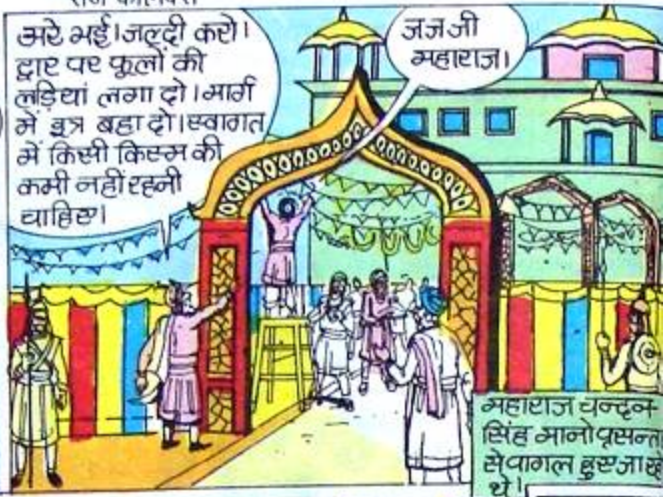 अरे भई। जल्दी करो।
द्वार पर फूलों की
लड़ियां लगा दो। मार्ग
में इत्र बहा दो। स्वागत
में किसी किस्म की
कमी नहीं रहनी
चाहिए।
जज जी
महाराज।
महाराज चन्दन
सिंह मानो प्रसन्नता
से पागल हुए जा रहे
थे।